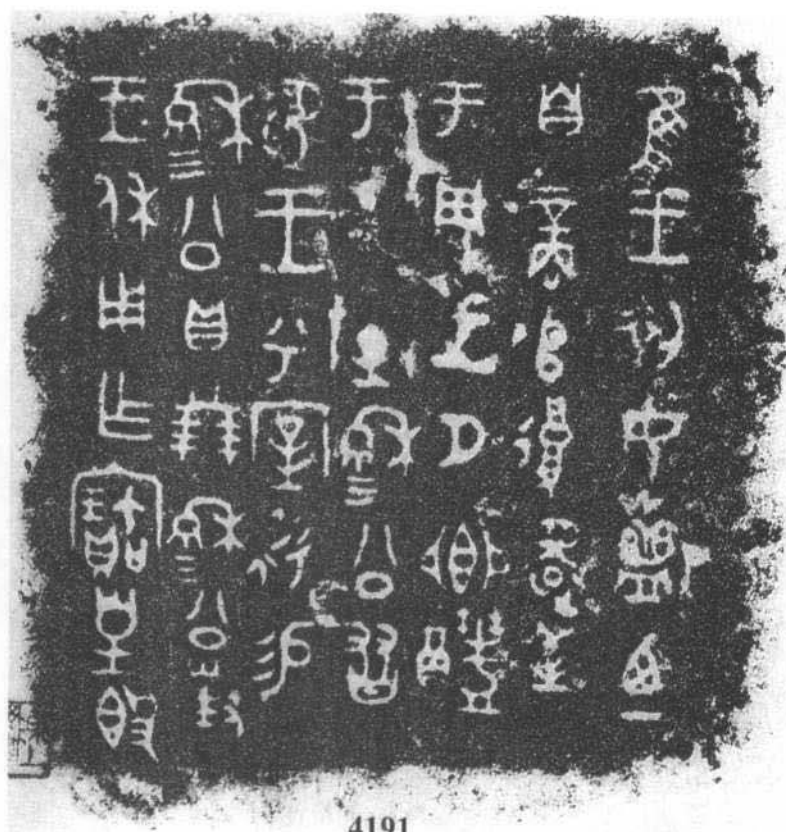 隹王初女廼
自商𠂤復還至
于周王夕鄉醴
于大室穆公友
御王乎宰利易
穆公貝廿朋穆公對
王休用乍寶皇簋
4191